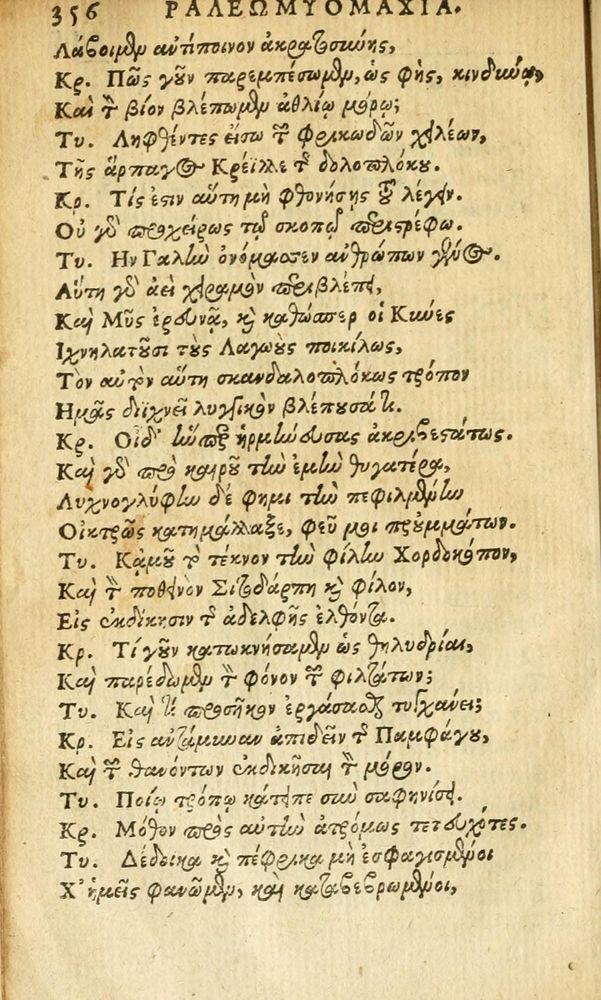 356 ΓΑΛΕΩΜΥΟΜΑΧΙΑ.
Λάβοιμεν αὐτίποινον ἀκρατοσκώης,
Κρ. Πῶς γοῦν παρεμπέσωμεν, ὡς φῂς, κινδιώῳ,
Καὶ τὸν βίον βλέπωμεν ἀθλίῳ μόρῳ;
Τυ. Ληφθέντες εἴσω τῶν φρικωδῶν χειλέων,
Τῆς ἅρπαγος Κρείλλε τοῦ δολοπλόκου.
Κρ. Τίς ἐστιν αὕτη μὴ φθονήσῃς τοῦ λέγειν.
Οὐ γὰρ προχείρως τῷ σκοπῷ περιστρέφω.
Τυ. Ην Γαλῶ ὀνόμασεν ἀνθρώπων γένος.
Αὕτη γὰρ ἀεὶ χηραμὸν περιβλέπει,
Καὶ Μῦς ἐρευνᾷ, καὶ καθώσπερ οἱ Κύνες
Ιχνηλατοῦσι τοὺς Λαγωοὺς ποικίλως,
Τὸν αὐτὸν αὕτη σκανδαλοπλόκως τρόπον
Ημᾶς διϊχνεῖ λυγγικὸν βλέπουσά τι.
Κρ. Οἶδ' ἥνπερ ἡρμήνευσας ἀκριβεστάτως.
Καὶ γὰρ πρὸ καιροῦ τὴν ἐμὴν θυγατέρα,
Λυχνογλύφον δέ φημι τὴν πεφιλμένην
Οἰκτρῶς κατημάλαξε, φεῦ μοι πρευμμάτων.
Τυ. Κἀμοῦ τὸ τέκνον τὴν φίλην Χορδοκόπον,
Καὶ τὸν ποθεινὸν Σιτοδάρπην καὶ φίλον,
Εἰς ἐκδίκησιν τῆς ἀδελφῆς ἐλθόντα.
Κρ. Τί γοῦν κατωκνήσαμεν ὡς θηλυδρίαι,
Καὶ παρέδωμεν τὸν φόνον τῶν φιλτάτων;
Τυ. Καὶ τί προσῆκον ἐργάσασθαι τυγχάνει;
Κρ. Εἰς ἀντάμυναν ἀπιδεῖν τοῦ Παμφάγου,
Καὶ τῶν θανόντων ἐκδικῆσαι τὸν μόρον.
Τυ. Ποίῳ τρόπῳ κάτειπε σὺν σαφηνίσει.
Κρ. Μόθον πρὸς αὐτὴν ἀτρόμως τετευχότες.
Τυ. Δέδοικα καὶ πέφρικα μὴ ἐσφαγισμένοι
Χ' ἡμεῖς φανῶμεν, καὶ καταβεβρωμένοι,